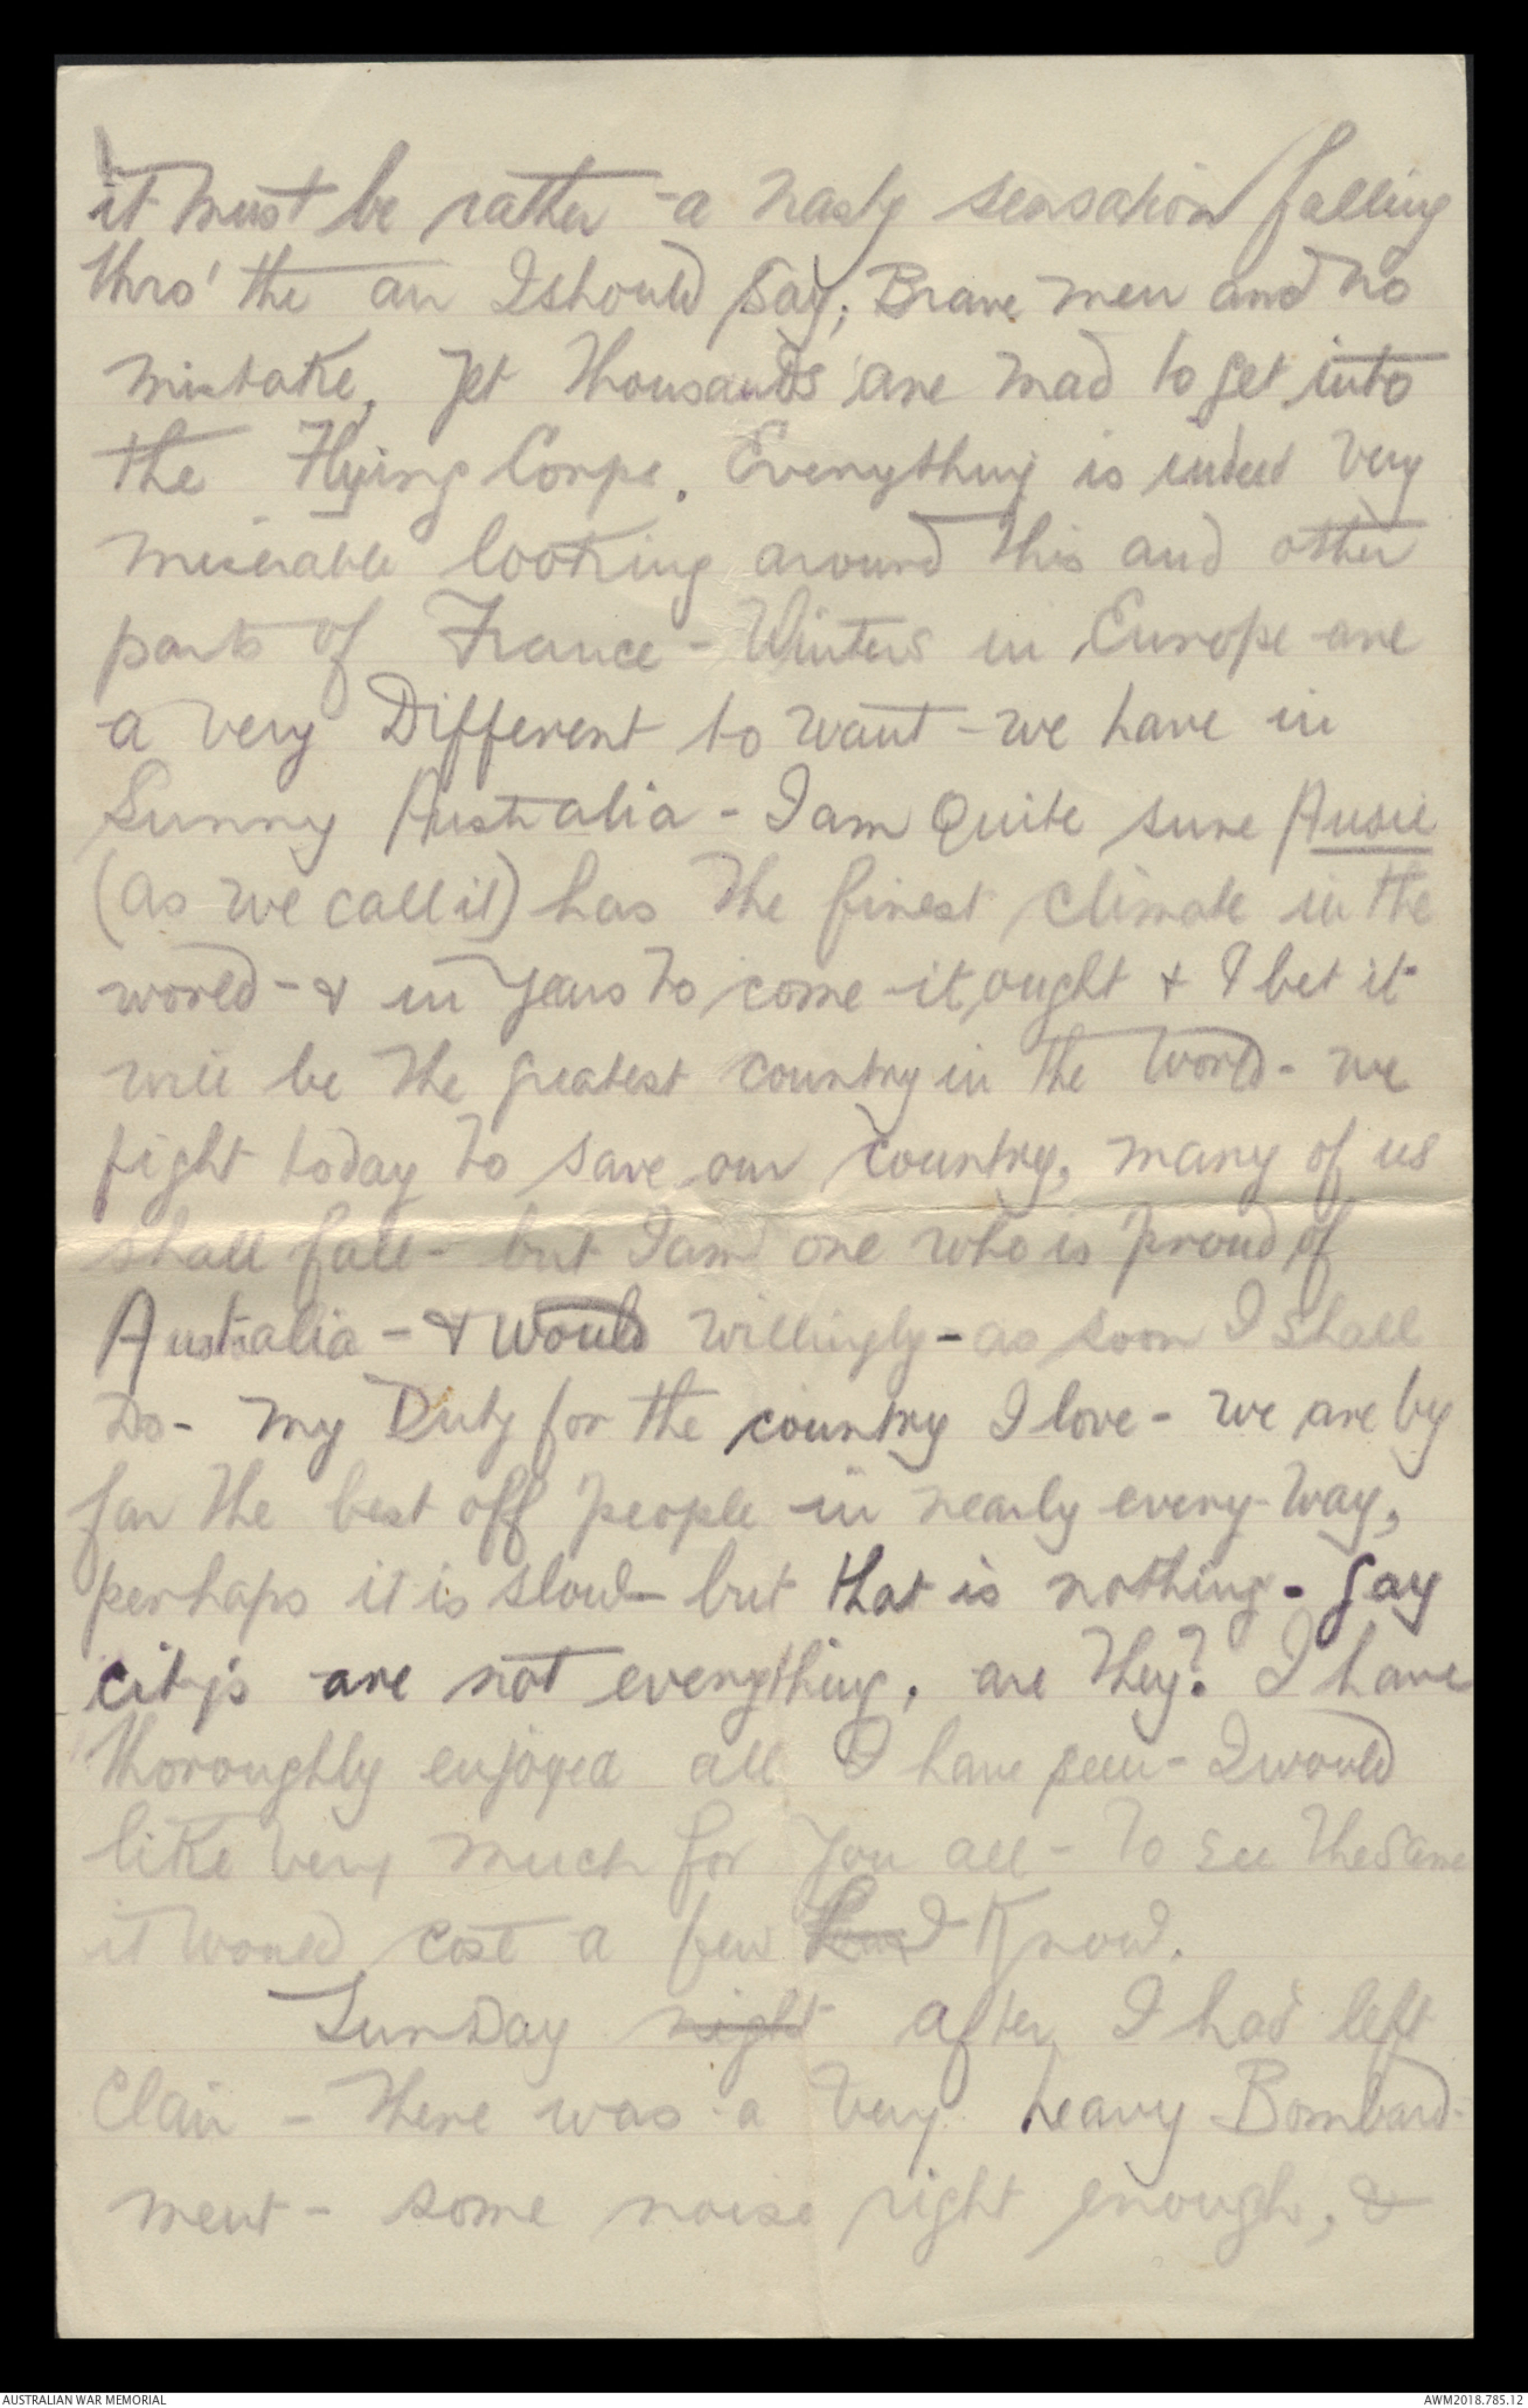 it must be rather a nasty sensation falling
thro' the air I should say; Brave men and no
mistake, yet thousands are mad to get into
the Flying Corps. Everything is indeed very
miserable looking around this and other
parts of France - Winters in Europe are
a very Different to want - we have in
Sunny Australia - I am Quite sure Ausie
(as we call it) has the finest climate in the
world - & in years to come it ought & I bet it
will be the greatest country in the world - we
fight today to save our country, many of us
shall fall - but I am one who is proud of
Australia - & would willingly - as soon I shall
Do - my Duty for the country I love - we are by
far the best off people in nearly every way,
perhaps it is slow - but that is nothing - Gay
city's are not everything, are they? I have
thoroughly enjoyed all I have seen - I would
like very much for you all - to see the same
it would cost a few I know.
Sunday night after I had left
Clair - there was a very heavy Bombard-
ment - some noise right enough, &
AUSTRALIAN WAR MEMORIAL
AWM2018.785.12